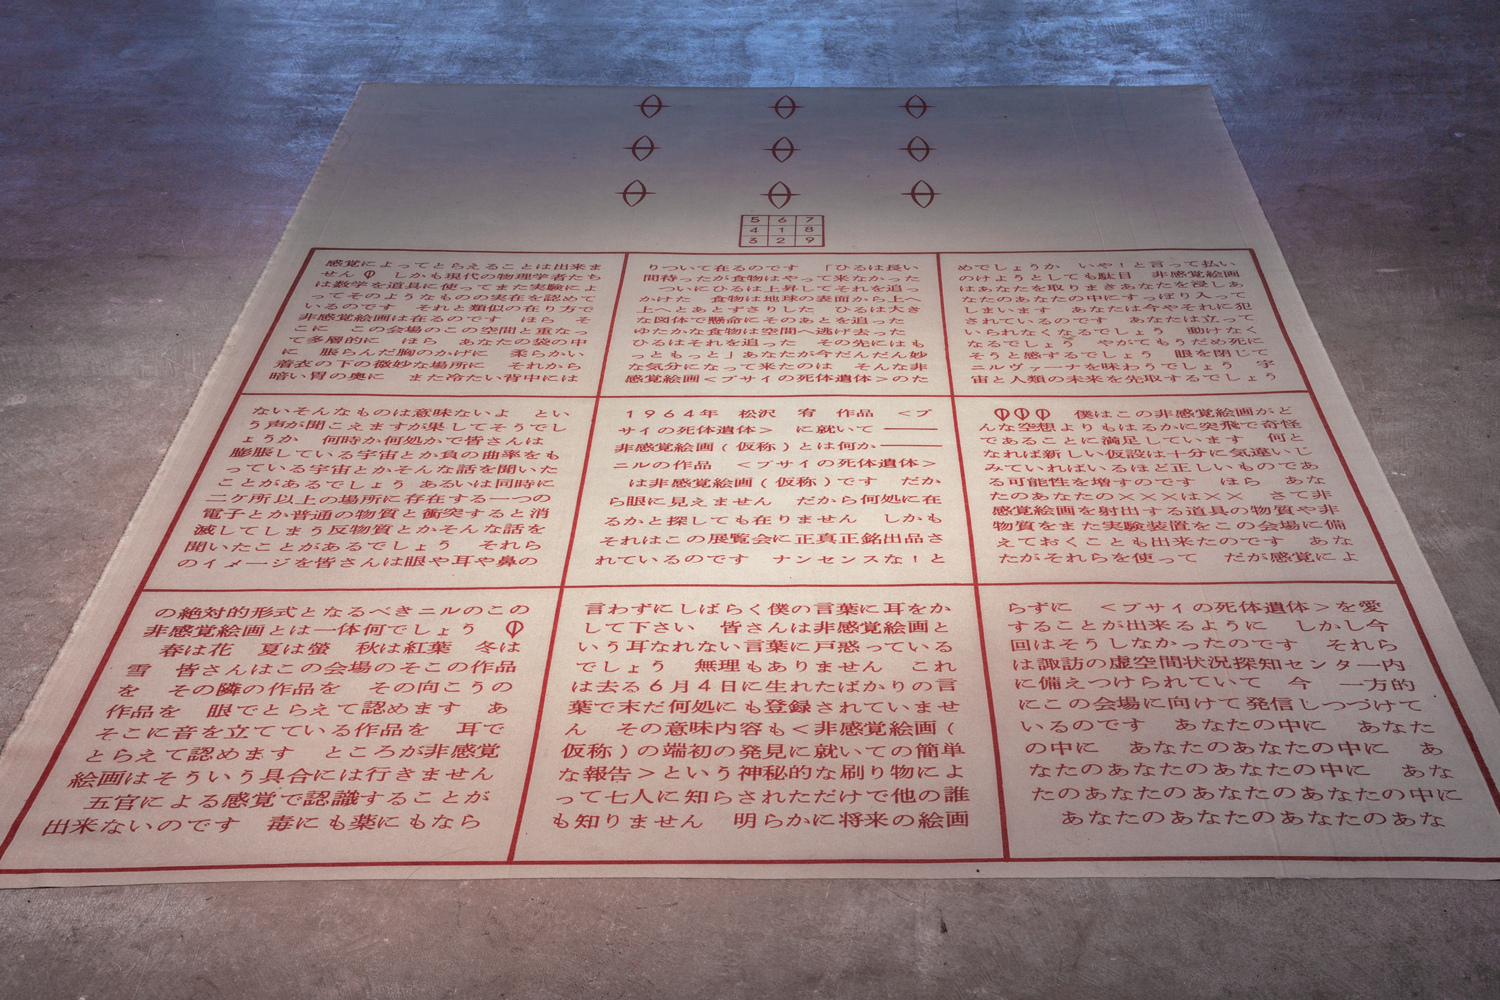 5 6 7
4 1 8
3 2 9
1964年 松沢 宥 作品 <プ
サイの死体遺体> に就いて ――
非感覚絵画(仮称)とは何か――
ニルの作品 <プサイの死体遺体>
は非感覚絵画(仮称)です だか
ら眼に見えません だから何処に在
るかと探しても在りません しかも
それはこの展覧会に正真正銘出品さ
れているのです ナンセンスな!と
言わずにしばらく僕の言葉に耳をか
して下さい 皆さんは非感覚絵画と
いう耳なれない言葉に戸惑っている
でしょう 無理もありません これ
は去る6月4日に生れたばかりの言
葉で末だ何処にも登録されていませ
ん その意味内容も<非感覚絵画(
仮称)の端初の発見に就いての簡単
な報告>という神秘的な刷り物によ
って七人に知らされただけで他の誰
も知りません 明らかに将来の絵画
の絶対的形式となるべきニルのこの
非感覚絵画とは一体何でしょう
春は花 夏は螢 秋は紅葉 冬は
雪 皆さんはこの会場のそこの作品
を その隣の作品を その向こうの
作品を 眼でとらえて認めます あ
そこに音を立てている作品を 耳で
とらえて認めます ところが非感覚
絵画はそういう具合には行きません
五官による感覚で認識することが
出来ないのです 毒にも薬にもなら
ないそんなものは意味ないよ とい
う声が聞こえますが果してそうでし
ょうか 何時か何処かで皆さんは
膨脹している宇宙とか負の曲率をも
っている宇宙とかそんな話を聞いた
ことがあるでしょう あるいは同時に
二ケ所以上の場所に存在する一つの
電子とか普通の物質と衝突すると消
滅してしまう反物質とかそんな話を
聞いたことがあるでしょう それら
のイメージを皆さんは眼や耳や鼻の
感覚によってとらえることは出来ま
せん しかも現代の物理学者たち
は数学を道具に使ってまた実験によ
ってそのようなものの実在を認めて
いるのです それと類似の在り方で
非感覚絵画は在るのです ほら そ
こに この会場のこの空間と重なっ
て多層的に ほら あなたの袋の中
に 脹らんだ胸のかげに 柔らかい
着衣の下の微妙な場所に それから
暗い胃の奥に また冷たい背中には
りついて在るのです 「ひるは長い
間待ったが食物はやって来なかった
ついにひるは上昇してそれを追っ
かけた 食物は地球の表面から上へ
上へとあとずさりした ひるは大き
な図体で懸命にそのあとを追った
ゆたかな食物は空間へ逃げ去った
ひるはそれを追った その先にはも
っともっと」あなたが今だんだん妙
な気分になって来たのは そんな非
感覚絵画<プサイの死体遺体>のた
めでしょうか いや!と言って払い
のけようとしても駄目 非感覚絵画
はあなたを取りまきあなたを浸しあ
なたのあなたの中にすっぽり入って
しまいます あなたは今やそれに犯
されているのです あなたは立って
いられなくなるでしょう 動けなく
なるでしょう やがてもうだめ死に
そうと感ずるでしょう 眼を閉じて
ニルヴァーナを味わうでしょう 宇
宙と人類の未来を先取するでしょう
僕はこの非感覚絵画がど
んな空想よりもはるかに突飛で奇怪
であることに満足しています 何と
なれば新しい仮設は十分に気違いじ
みていればいるほど正しいものであ
る可能性を増すのです ほら あな
たのあなたの×××は×× さて非
感覚絵画を射出する道具の物質や非
物質をまた実験装置をこの会場に備
えておくことも出来たのです あな
たがそれらを使って だが感覚によ
らずに <プサイの死体遺体>を愛
することが出来るように しかし今
回はそうしなかったのです それら
は諏訪の虚空間状況探知センター内
に備えつけられていて 今 一方的
にこの会場に向けて発信しつづけて
いるのです あなたの中に あなた
の中に あなたのあなたの中に あ
なたのあなたのあなたの中に あな
たのあなたのあなたのあなたの中に
あなたのあなたのあなたのあな